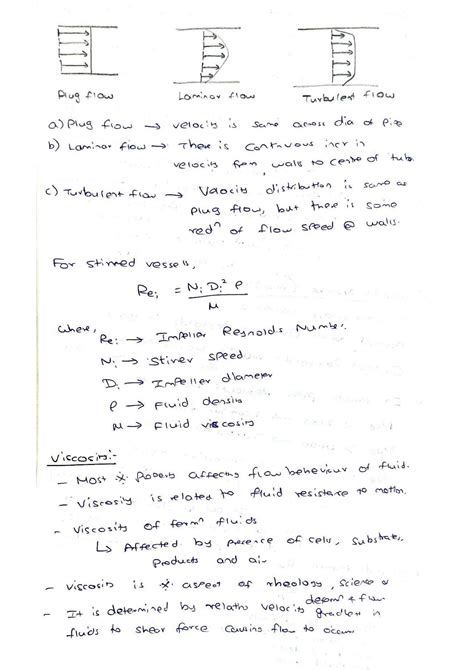 Plug flow    Laminar flow    Turbulent flow
a) Plug flow → velocity is same across dia of pipe
b) Laminar flow → There is continuous incr in
velocity from walls to centre of tube.
c) Turbulent flow → Velocity distribution is same as
plug flow, but there is some
redⁿ of flow speed @ walls.
For stirred vessels,
Reᵢ = Nᵢ Dᵢ² ρ / μ
where,
Reᵢ → Impeller Reynolds Number.
Nᵢ → Stirrer speed
Dᵢ → Impeller diameter
ρ → Fluid density
μ → Fluid viscosity
Viscosity:-
- Most * property affecting flow behaviour of fluid.
- Viscosity is related to fluid resistance to motion.
- Viscosity of fermⁿ fluids
↳ Affected by presence of cells, substrates,
products and air
- Viscosity is * aspect of rheology, science of
deformⁿ & flow.
- It is determined by relatn velocity gradient in
fluids to shear force causing flow to occur